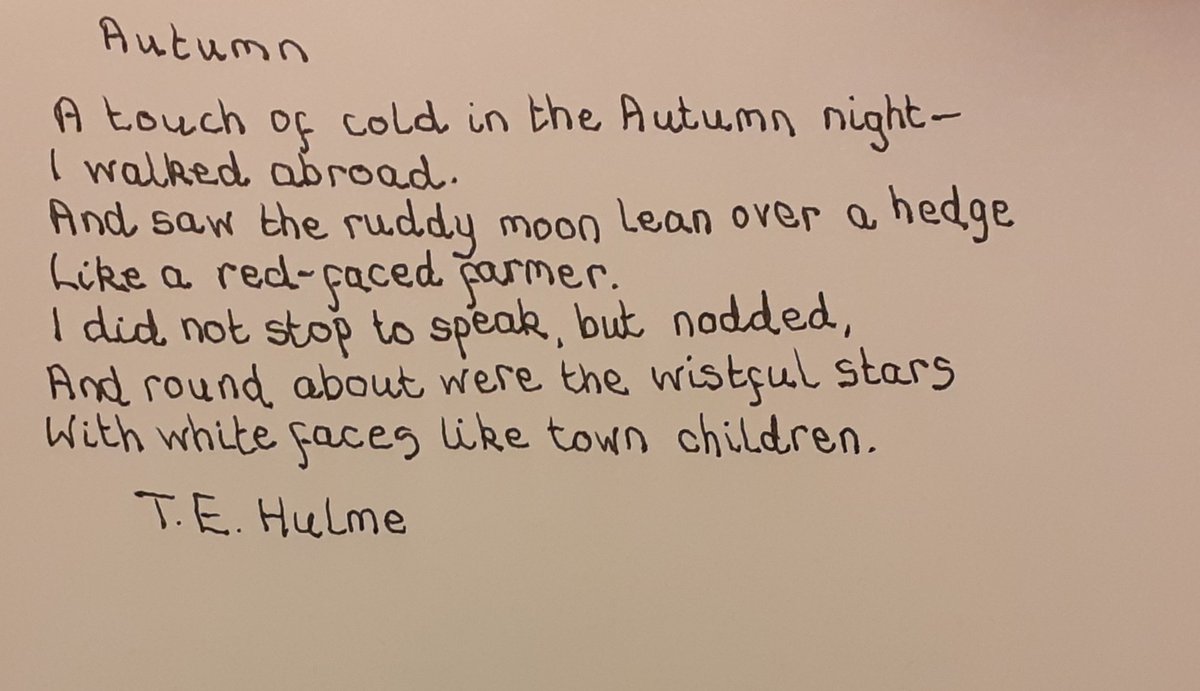 Autumn
A touch of cold in the Autumn night-
I walked abroad.
And saw the ruddy moon lean over a hedge
Like a red-faced farmer.
I did not stop to speak, but nodded,
And round about were the wistful stars
With white faces like town children.
T.E. Hulme